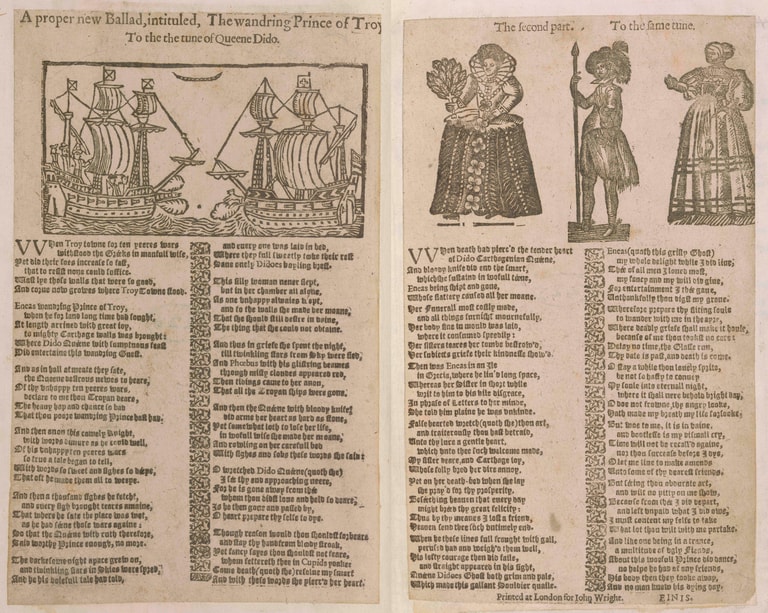 A proper new Ballad, intituled, The wandring Prince of Troy
To the the tune of Queene Dido.
VVHen Troy towne for ten yeeres wars
withstood the Greeks in manfull wise,
Yet did their foes increase so fast,
that to resist none could suffice.
Wast lye those walls that were so good,
And corne now growes where Troy Towne stood.
Eneas wandring Prince of Troy,
when he for land long time had sought,
At length arrived with great ioy,
to mighty Carthage walls was brought:
Where Dido Quéene with sumptuous feast
Did entertaine this wandring Guest.
And as in hall at meate they sate,
the Quéene desirous newes to heare,
Of thy unhappy ten yeeres wars,
declare to me thou Troyan deare,
The heavy hap and chance so bad
That thou poore wandring Prince hast had.
And then anon this comely Knight,
with words demure as he could well,
Of his unhappy ten yeeres wars
so true a tale began to tell,
With words so sweet and sighes so déepe,
That oft he made them all to wéepe.
And then a thousand sighes he fetcht,
and every sigh brought teares amaine,
That where he sate the place was wet,
as he had séene those wars againe:
So that the Quéene with ruth therefore,
Said worthy Prince enough, no more.
The darkesome night apace grew on,
and twinkling stars in Skies were spred,
And he his dolefull tale had told,
and every one was laid in bed,
Where they full sweetly tooke their rest
Save onely Didoes boyling brest.
This silly woman never slept,
but in her chamber all alone,
As one unhappy alwaies wept,
and to the walls she made her moane,
That she should still desire in vaine,
The thing that she could not obtaine.
And thus in griefe she spent the night,
till twinkling stars from sky were fled,
And Phoebus with his glistring beames
through misty cloudes appeared red,
Then tidings came to her anon,
That all the Troyan ships were gone.
And then the Quéene with bloody knife
did arme her heart as hard as stone,
Yet somewhat loth to lose her life,
in wofull wise she made her moane,
And rowling on her carefull bed
With sighes and sobs these words she said:
O wretched Dido Quéene (quoth she)
I sée thy end approaching néere,
For he is gone away from thée
whom thou didst love and hold so deare,
Is he then gone and passed by,
O heart prepare thy selfe to dye.
Though reason would thou shouldst forbeare
and stay thy hand from bloody stroak,
Yet fancy sayes thou shouldst not feare,
whom fettereth thée in Cupids yoake,
Come death (quoth she) resolve my smart
And with those words she pierc'd her heart.
The second part. To the same tune.
VVHen death had pierc'd the tender heart
of Dido Carthagenian Quéene,
And bloody knife did end the smart,
which she sustaind in wofull téene,
Eneas being shipt and gone,
Whose flattery caused all her moane.
Her Funerall most costly made,
and all things furnisht mournefully,
Her body fine in mould was laid,
where it consumed spéedily:
Her sisters teares her tombe bestrow'd,
Her subiects griefe their kindnesse show'd.
Then was Eneas in an Ile
in Grecia, where he liv'd long space,
Whereas her Sister in short while
writ to him to his vile disgrace,
In phrase of Letters to her minde,
She told him plaine he was unkinde.
False hearted wretch (quoth she) thou art,
and traiterously thou hast betraid,
Unto thy lure a gentle heart,
which unto thée such welcome made,
My sister deare, and Carthage ioy,
Whose folly bred her dire annoy.
Yet on her death-bed when she lay
she pray'd for thy prosperity,
Beséeching heaven that every day
might bréed thy great felicity:
Thus by thy meanes I lost a friend,
Heaven send thée such untimely end.
When he these lines full fraught with gall,
perused had and weigh'd them well,
His lofty courage then did fall,
and straight appeared in his sight,
Quéene Didoes Ghost both grim and pale,
Which made this gallant Souldier quaile.
Eneas (quoth this grisly Ghost)
my whole delight while I did live,
Thée of all men I loved most,
my fancy and my will did give,
For entertainment I thée gave,
Unthankfully thou didst my grave.
Wherefore prepare thy flitting soule
to wander with me in the ayre,
Where deadly griefe shall make it howle,
because of me thou tookst no care:
Delay no time, thy Glasse is run,
Thy date is past, and death is come.
O stay a while thou lovely sprite,
be not so hasty to convey
My soule into eternall night,
where it shall nere behold bright day,
O doe not frowne, thy angry lookes,
Hath made my breath my life forsooke.
But woe to me, it is in vaine,
and bootlesse is my dismall cry,
Time will not be recall'd againe,
nor thou surcease before I dye,
O let me live to make amends
Unto some of thy dearest friends.
But séeing thou obdurate art,
and wilt no pitty on me show,
Because from thée I did depart,
and left unpaid what I did owe,
I must content my selfe to take
What lot thou wilt with me partake.
And like one being in a trance,
a multitude of ugly Fiends,
About this woofull Prince did dance,
no helpe he had of any friends,
His body then they tooke away,
And no man knew his dying day.
Printed at London for John Wright. FINIS.